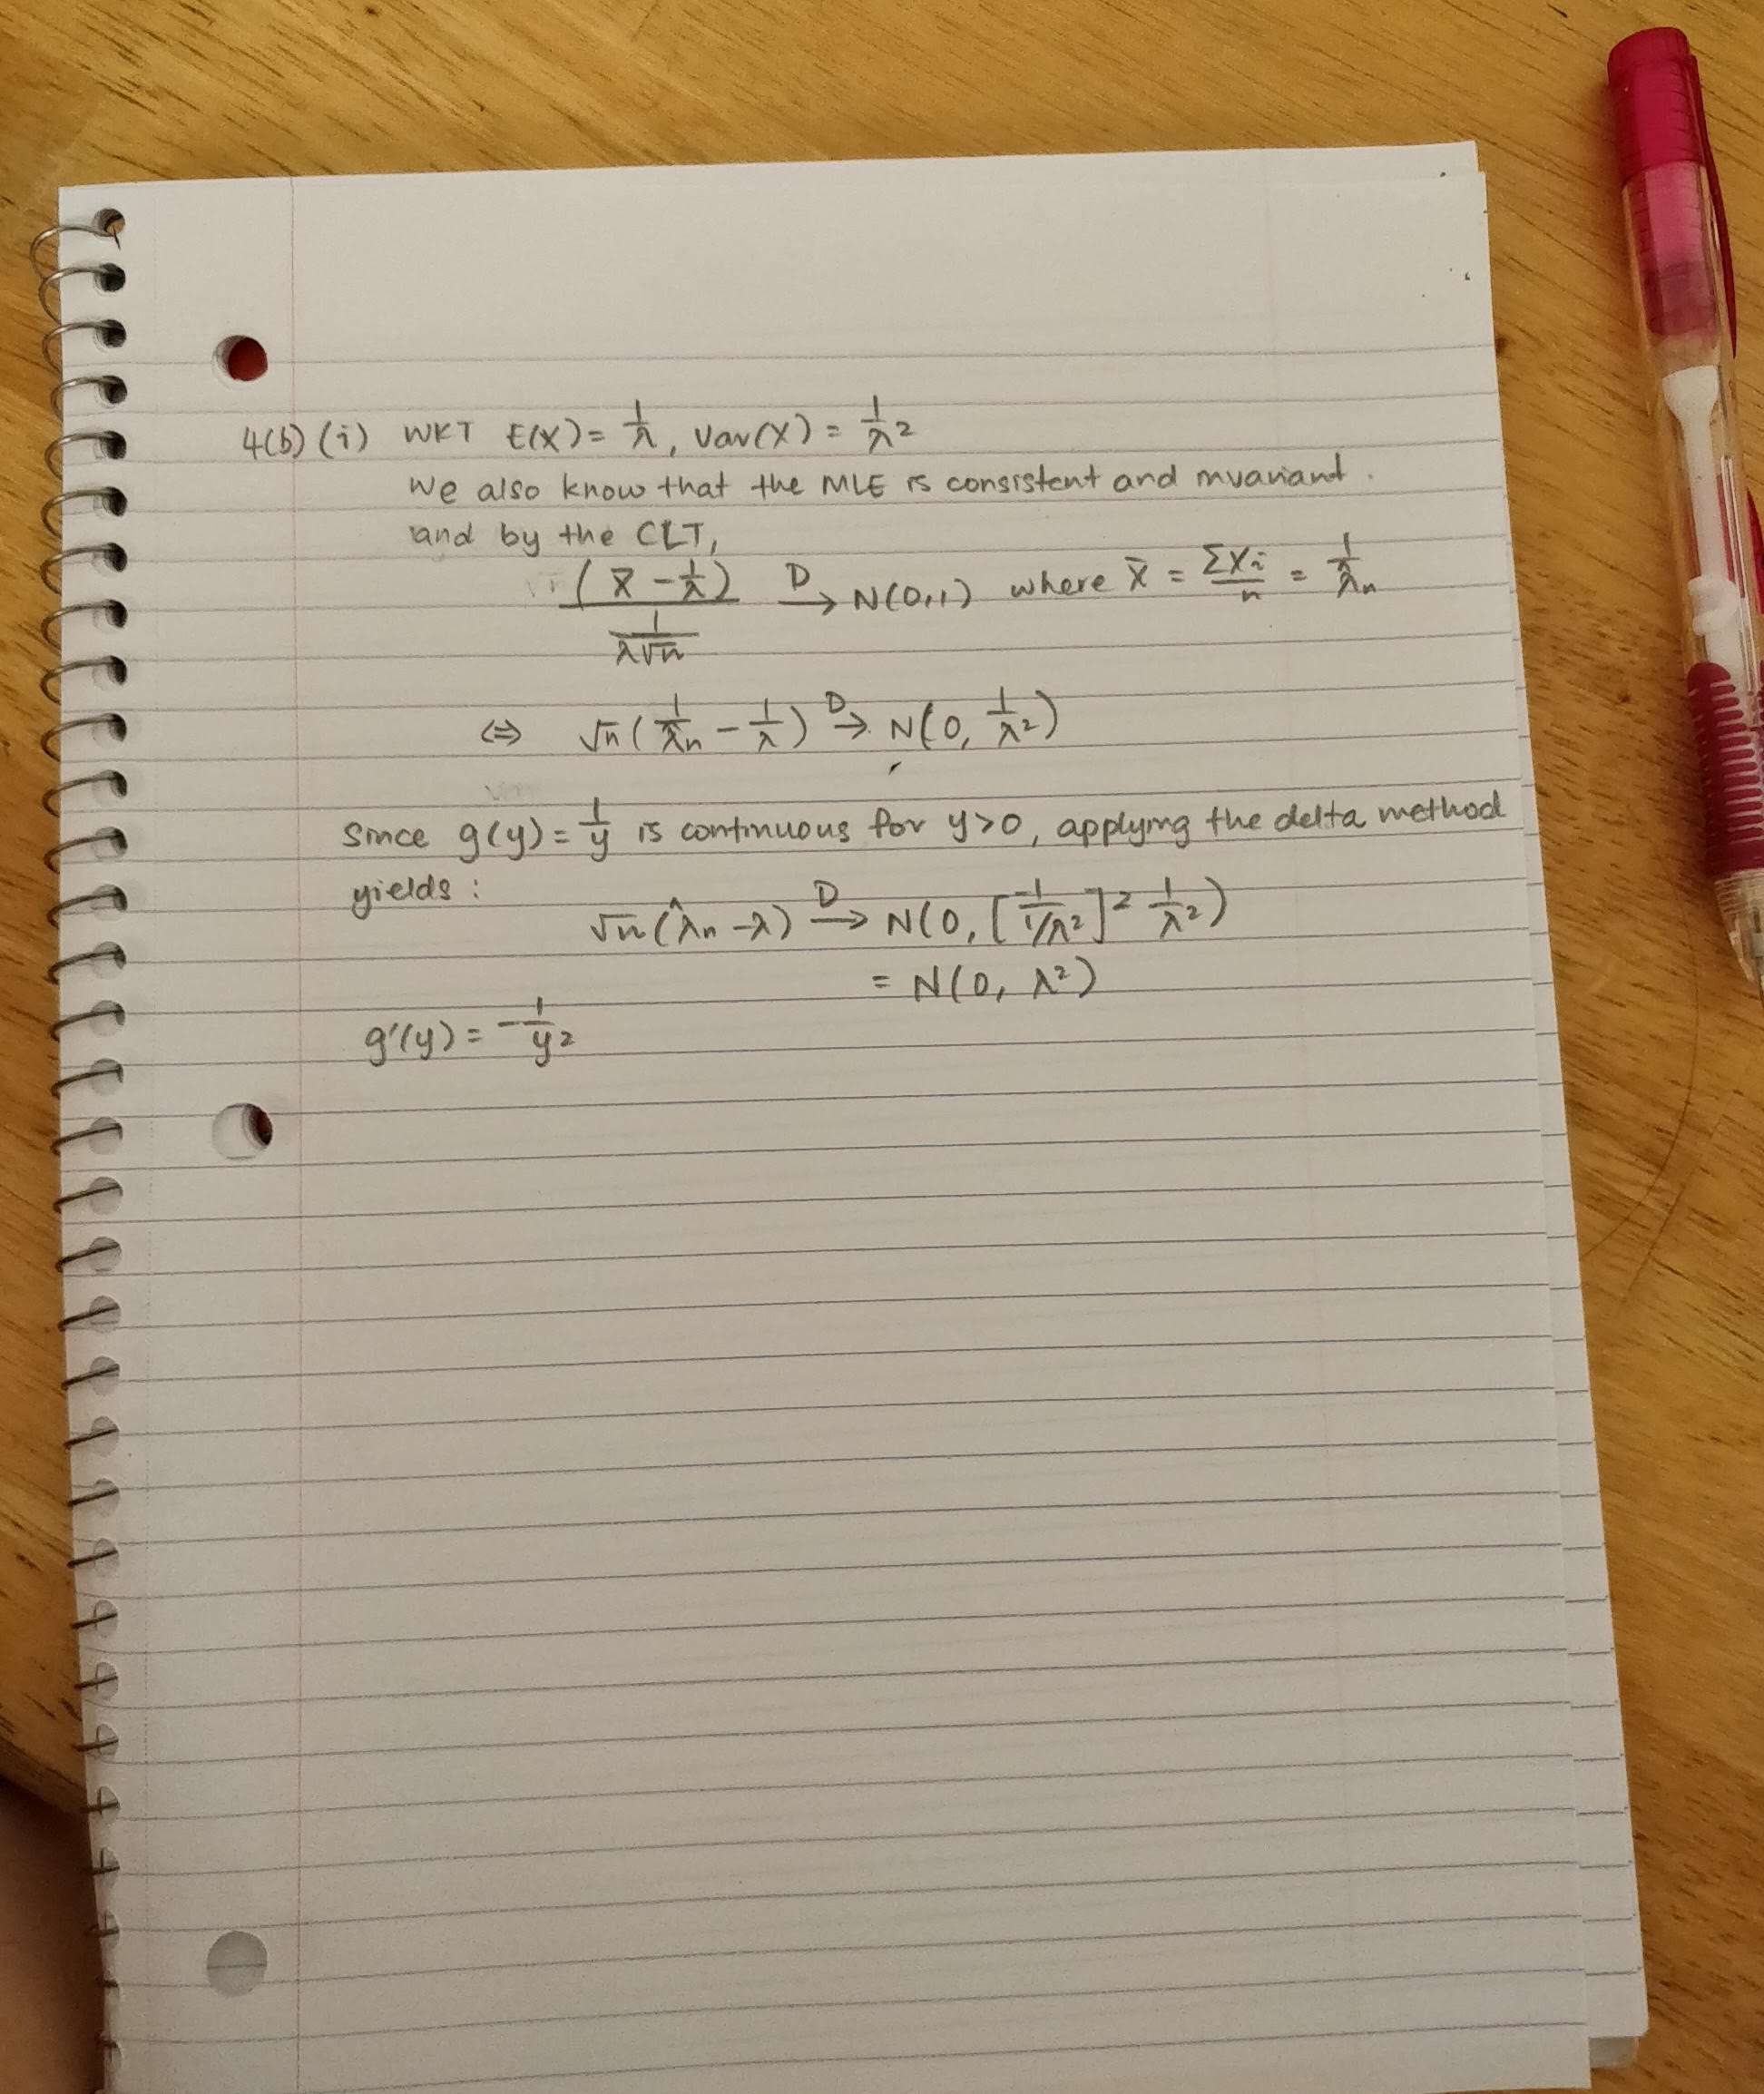 4(b) (i) WKT E(X) = 1/λ, Var(X) = 1/λ²
We also know that the MLE is consistent and invariant.
and by the CLT,
(X̄ - 1/λ) / (1/(λ√n)) →ᴰ N(0,1) where X̄ = ΣXi/n = 1/λ̂n
⇔ √n (1/λ̂n - 1/λ) →ᴰ N(0, 1/λ²)
Since g(y) = 1/y is continuous for y>0, applying the delta method
yields:
√n (λ̂n - λ) →ᴰ N(0, [-1/(1/λ²)]² 1/λ²)
= N(0, λ²)
g'(y) = -1/y²